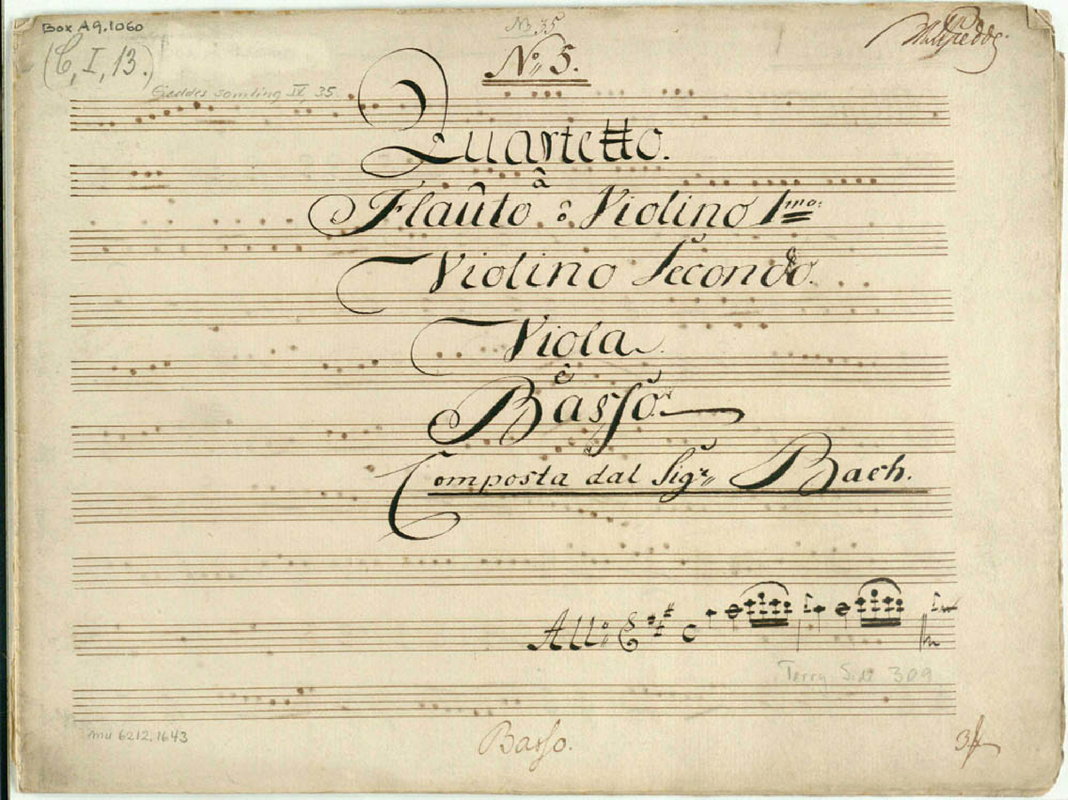 Box A9.1060
(C, I, 13.)
No 35
No 5.
Gieddes samling IX, 35.
Quartetto.
â
Flaûto ò Violino 1mo:
Violino Secondo.
Viola
è
Basso.
Composta dal Sigr Bach.
Allo: C
Terry S. 309
mu 6212.1643
Basso.